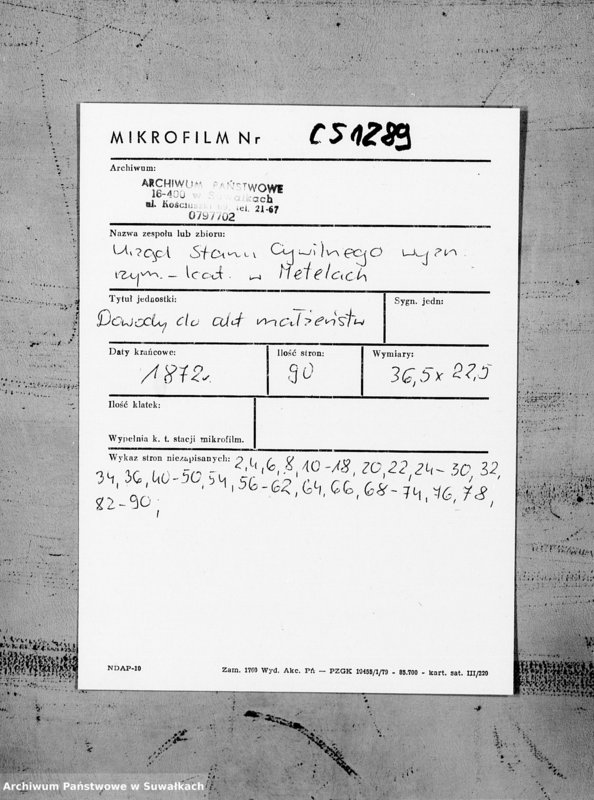 MIKROFILM Nr CS1289
Archiwum:
ARCHIWUM PAŃSTWOWE
16-400 w Suwałkach
ul. Kościuszki tel. 21-67
0797702
Nazwa zespołu lub zbioru:
Urząd Stanu Cywilnego wyzn.
rzym.-kat. w Metelach
Tytuł jednostki:
Sygn. jedn:
Dowody do akt małżeństw
Daty krańcowe:
Ilość stron:
Wymiary:
1872r.
90
36,5 x 22,5
Ilość klatek:
Wypełnia k. t. stacji mikrofilm.
Wykaz stron niezapisanych: 2,4,6,8,10-18,20,22,24-30,32,
34,36,40-50,54,56-62,64,66,68-74,76,78,
82-90;
NDAP-10
Zam. 1760 Wyd. Akc. Pń — PZGK 10458/I/79 - 85.700 - kart. sat. III/220
Archiwum Państwowe w Suwałkach